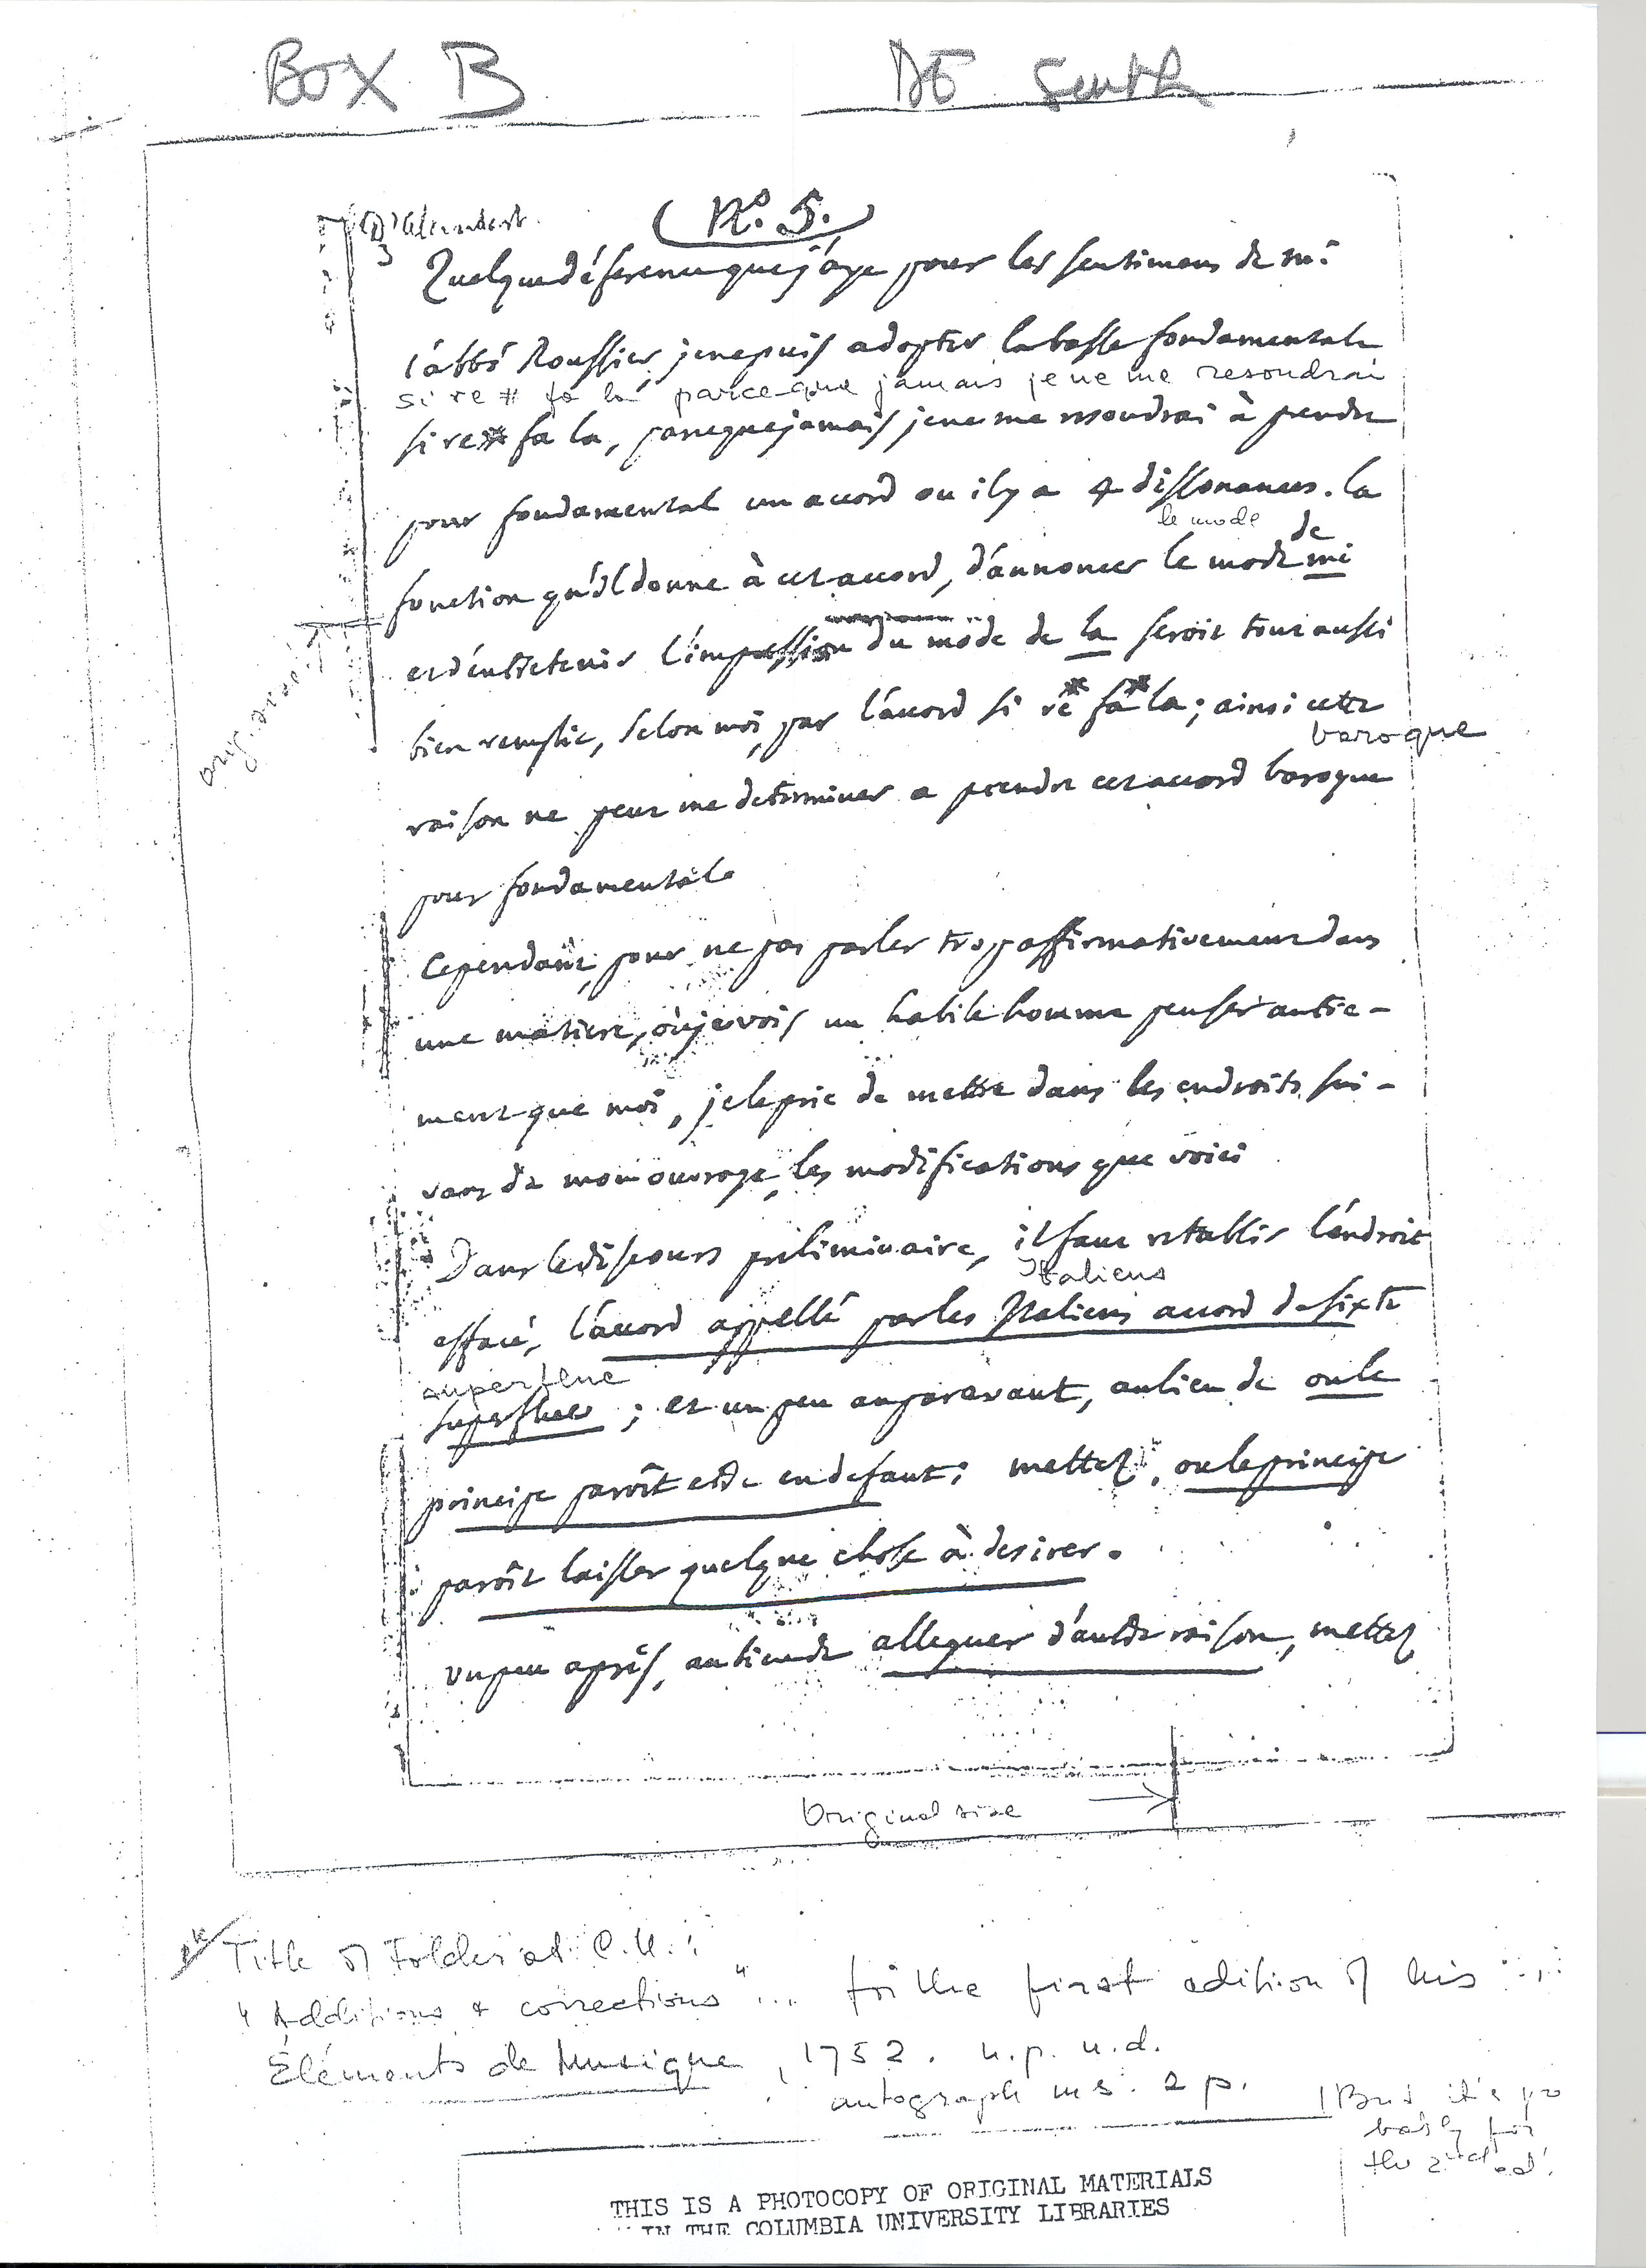 BOX B DE
D'Alembert.
(No. 5.)
Quelque déference que j'aye pour les sentimens de mr
l'abbé Roussier, je ne puis adopter la basse fondamentale
si re # fa la parce-que jamais je ne me resoudrai
si re# fa la, parceque jamais je ne me resoudrai à prendre
pour fondamental un accord ou il y a 4 dissonances. la
le mode de
fonction qu'il donne à cet accord, d'annoncer le mode mi
et d'entretenir l'impression du mode de la seroit tout aussi
bien remplie, selon moi, par l'accord si re# fa# la; ainsi cette
baroque
raison ne peut me determiner a prendre cet accord baroque
pour fondamentale
Cependant, pour ne pas parler trop affirmativement dans
une matiere, où je vois un habile homme penser autre-
ment que moi, je le prie de mettre dans les endroits sui-
vans de mon ouvrage, les modifications que voici
Dans le discours preliminaire, il faut retablir l'endroit
Italiens
effacé, l'accord appellé par les Italiens accord de sixte
superflue
superflue; et un peu auparavant, au lieu de ou le
principe paroît etre en defaut; mettez, ou le principe
paroît laisser quelque chose à desirer.
un peu après, au lieu de alleguer d'autre raison, mettez
Original size
Title of Folder at C.U.:
"Additions & corrections" ... for the first edition of his
Éléments de Musique, 1752. n.p. n.d.
autograph ms. 2 p.
But it's pro
bably for
the 2nd ed.
THIS IS A PHOTOCOPY OF ORIGINAL MATERIALS
IN THE COLUMBIA UNIVERSITY LIBRARIES